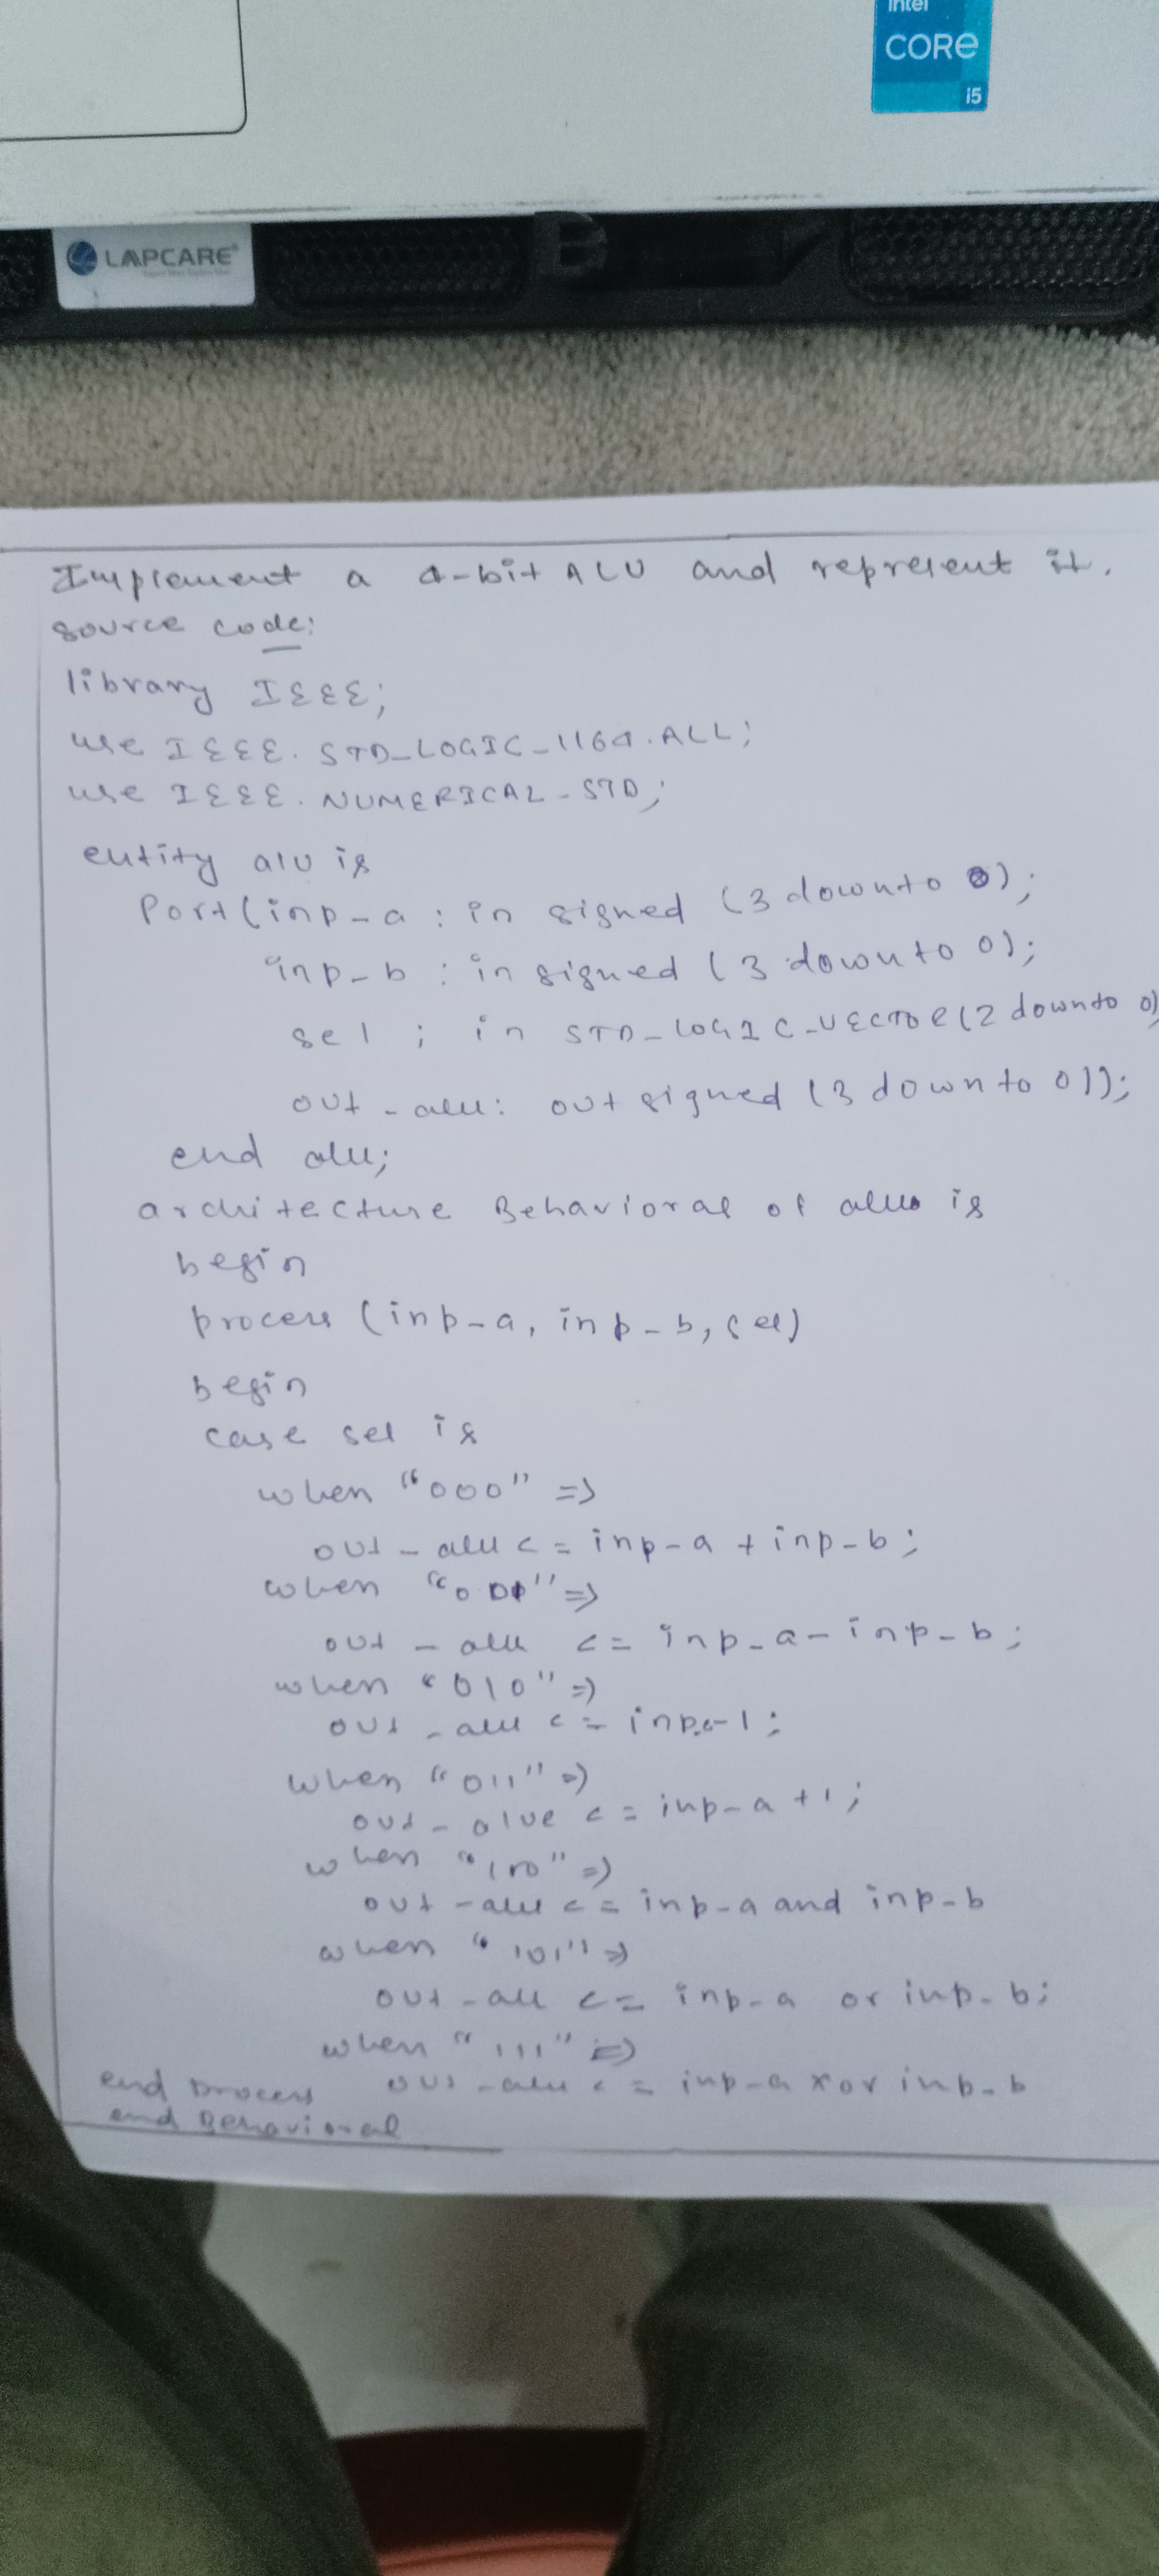 intel
CORe
i5
LAPCARE
Implement a 4-bit ALU and represent it.
source code:
library IEEE;
use IEEE. STD_LOGIC_1164.ALL;
use IEEE. NUMERICAL_STD;
entity alu is
Port(inp_a : in signed (3 downto 0);
inp_b : in signed (3 downto 0);
sel ; in STD_LOGIC_VECTOR(2 downto 0)
out_alu: out signed (3 downto 0));
end alu;
architecture Behavioral of alu is
begin
process (inp_a, inp_b, sel)
begin
case sel is
when "000" =>
out_alu <= inp_a + inp_b;
when "001" =>
out_alu <= inp_a - inp_b;
when "010" =>
out_alu <= -1;
when "011" =>
out_alue <= inp_a +1;
when "100" =>
out_alu <= inp_a and inp_b
when "101" =>
out_alu <= inp_a or inp_b;
when "111" =>
end process out_alu <= inp_a xor inp_b
end Behavioral